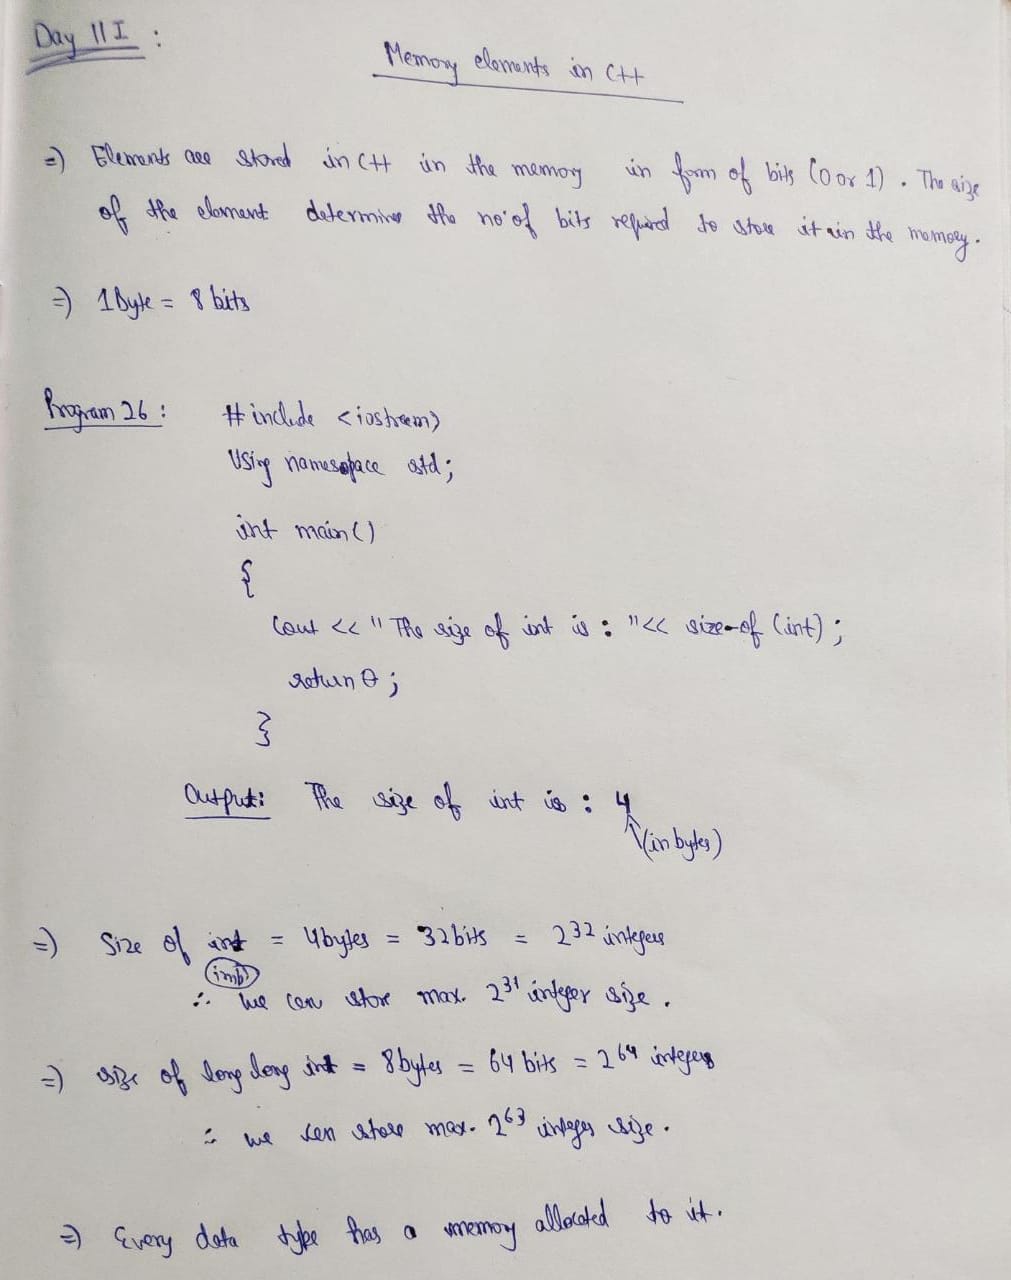 Day III :
Memory elements in C++
=) Elements are stored in C++ in the memory in form of bits (0 or 1). The size
of the element determines the no. of bits required to store it in the memory.
=) 1 Byte = 8 bits
Program 26 : # include <iostream>
Using namespace std;
int main()
{
Cout << "The size of int is : "<< size-of (int) ;
return 0 ;
}
Output: The size of int is : 4
(in bytes)
=) Size of int = 4 bytes = 32 bits = 2^32 integers
(imp)
∴ We can store max. 2^31 integer size .
=) size of long long int = 8 bytes = 64 bits = 2^64 integers
∴ we can store max. 2^63 integer size .
=) Every data type has a memory allocated to it.